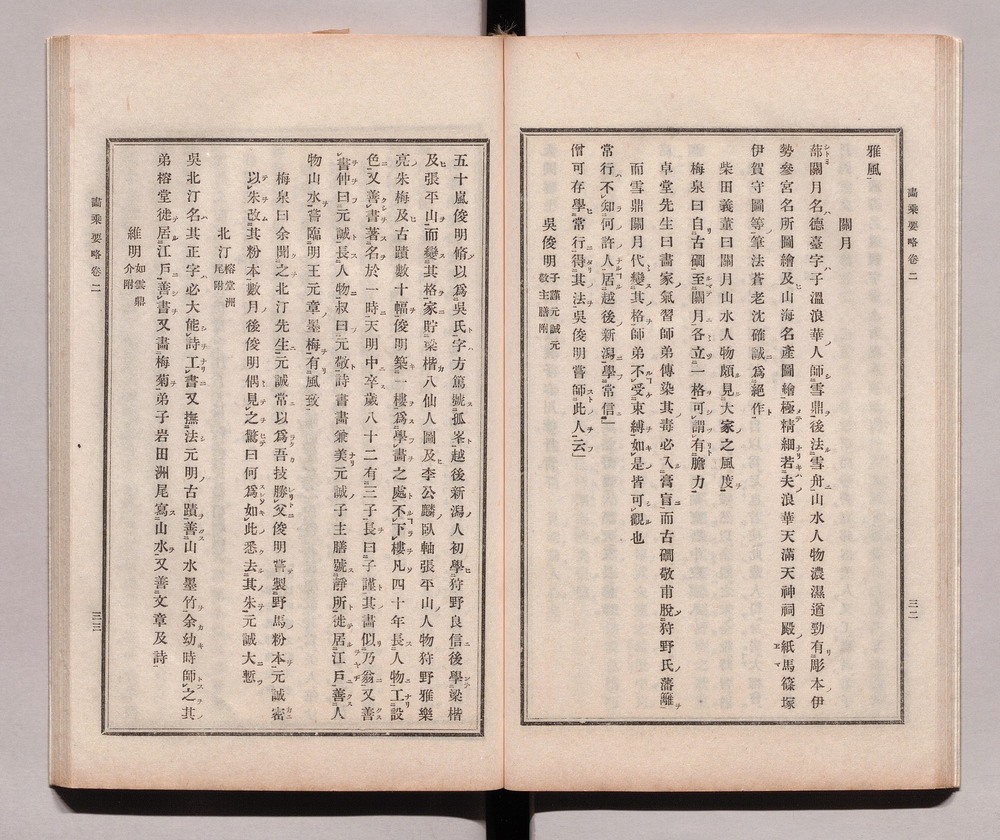 畵乘要略卷二
三二
雅風
關月
蔀關月名德臺字子溫浪華人師雪鼎後法雪舟山水人物濃濕遒勁有彫本伊
勢參宮名所圖繪及山海名產圖繪極精細若夫浪華天滿天神祠殿紙馬篠塚
伊賀守圖等筆法蒼老沈確誠爲絕作
柴田義董曰關月山水人物頗見大家之風度
梅泉曰自古磵至關月各立一格可謂有膽力
卓堂先生曰畵家氣習師弟傳染其毒必入膏肓而古磵敬甫脫狩野氏藩籬
而雪鼎關月代變其格師弟不受束縛如是皆可觀也
常行不知何許人居越後新潟學常信
僧可存學常行得其法吳俊明嘗師此人云
吳俊明子謹元誠元敬主膳附
五十嵐俊明脩以爲吳氏字方篤號孤峯越後新潟人初學狩野良信後學梁楷
及張平山而變其格家貯梁楷八仙人圖及李公麟臥軸張平山人物狩野雅樂
亮朱梅及古蹟數十幅俊明築一樓爲學畵之處不下樓凡四十年長人物工設
色又善書著名於一時天明中卒歲八十二有三子長曰子謹其畵似乃翁又善
書仲曰元誠長人物叔曰元敬詩書畵兼美元誠子主膳號靜所徙居江戶善人
物山水嘗臨明王元章墨梅有風致
梅泉曰余聞之北汀先生元誠常以爲吾技勝父俊明嘗製野馬粉本元誠密
以朱改其粉本數月後俊明偶見之驚曰何爲如此悉去其朱元誠大慙
北汀榕堂洲尾附
吳北汀名其正字必大能詩工書又撫法元明古蹟善山水墨竹余幼時師之其
弟榕堂徙居江戶善書又畵梅菊弟子岩田洲尾寫山水又善文章及詩
維明如雲鼎介附
畵乘要略卷二
三三